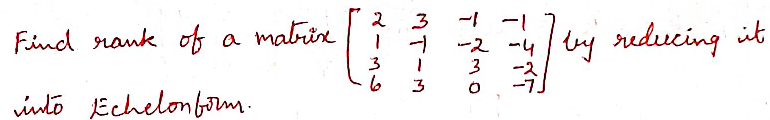 Find rank of a matrix [2 3 -1 -1; 1 -1 -2 -4; 3 1 3 -2; 6 3 0 -7] by reducing it
into Echelonform.